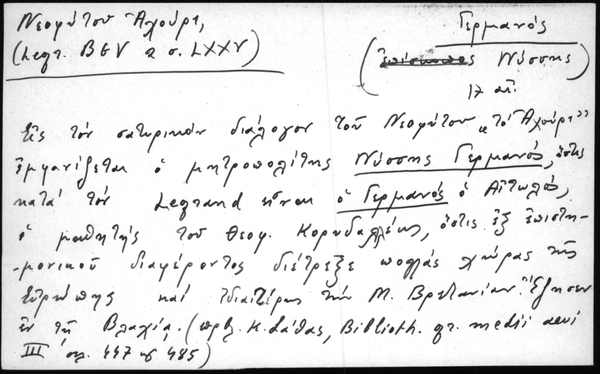 Νεοφύτου Ἀχούρι,
(Legr. BGV 2 σ. LXXV)
Γερμανός
(ἐπίσκοπος Νύσσης)
17 αἰ.
Εἰς τὸν σατυρικὸν διάλογον τοῦ Νεοφύτου "τὸ Ἀχούρι"
ἐμφανίζεται ὁ μητροπολίτης Νύσσης Γερμανός, ὅστις
κατὰ τὸν Legrand εἶναι ὁ Γερμανός ὁ Αἰτωλός,
ὁ μαθητής τοῦ Θεοφ. Κορυδαλλέως, ὅστις ἐξ ἐπιστη-
-μονικοῦ διαφέροντος διέτρεξε πολλάς χώρας τῆς
Εὐρώπης καὶ ἰδιαιτέρως τὴν Μ. Βρετανίαν. Ἔζησεν
ἐν τῇ Βλαχίᾳ. (πρβλ. Κ. Σάθας, Biblioth. gr. medii aevi
III, σελ. 447 485)